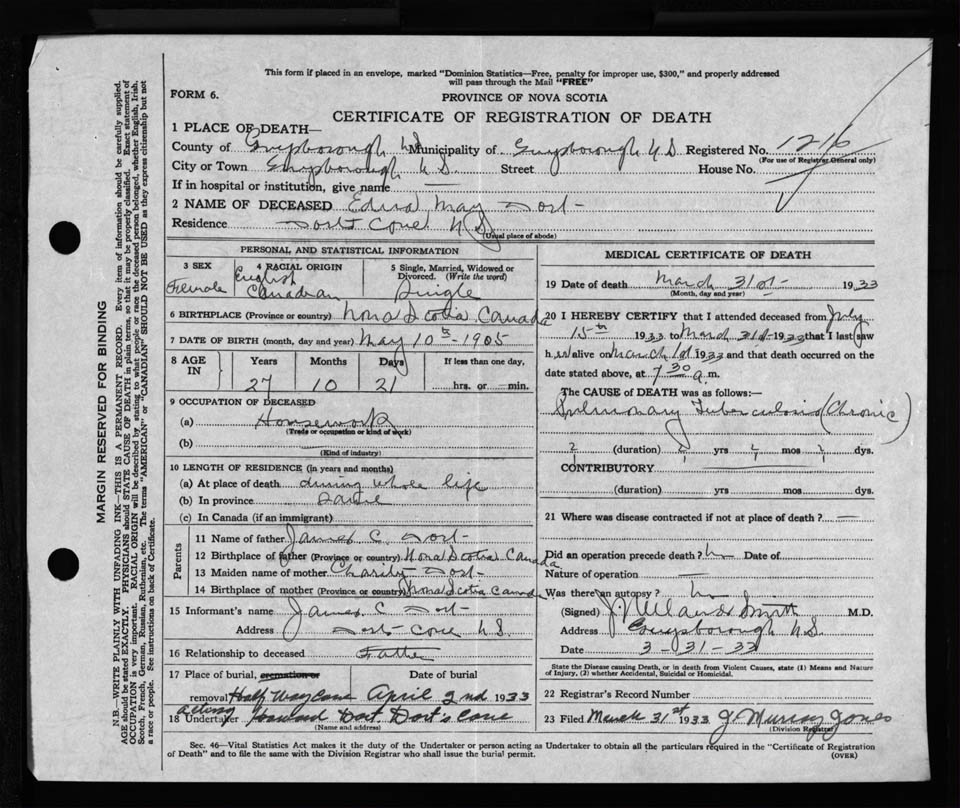 This form if placed in an envelope, marked "Dominion Statistics—Free, penalty for improper use, $300," and properly addressed
will pass through the Mail "FREE"
FORM 6.
PROVINCE OF NOVA SCOTIA
CERTIFICATE OF REGISTRATION OF DEATH
1 PLACE OF DEATH—
County of Guysborough N.S. Municipality of Guysborough N.S. Registered No. 1216
(For use of Registrar General only)
City or Town Guysborough N.S. Street House No.
If in hospital or institution, give name —
2 NAME OF DECEASED Edna May Dort
Residence Dorts Cove N.S.
(Usual place of abode)
PERSONAL AND STATISTICAL INFORMATION
3 SEX
Female
4 RACIAL ORIGIN
English
Canadian
5 Single, Married, Widowed or
Divorced. (Write the word)
Single
6 BIRTHPLACE (Province or country) Nova Scotia Canada
7 DATE OF BIRTH (month, day and year) May 10th-1905
8 AGE
IN
Years Months Days If less than one day,
27 10 21 hrs. or min.
9 OCCUPATION OF DECEASED
(a) Housework
(Trade or occupation or kind of work)
(b)
(Kind of industry)
10 LENGTH OF RESIDENCE (in years and months)
(a) At place of death during whole life
(b) In province
(c) In Canada (if an immigrant)
Parents
11 Name of father James C. Dort
12 Birthplace of father (Province or country) Nova Scotia Canada
13 Maiden name of mother Charity Dort
14 Birthplace of mother (Province or country) Nova Scotia Canada
15 Informant's name James C. Dort
Address Dorts Cove N.S.
16 Relationship to deceased Father
17 Place of burial, cremation or Date of burial
removal Half Way Cove April 2nd 1933
acting
18 Undertaker Howard Dort. Dort's Cove
(Name and address)
MEDICAL CERTIFICATE OF DEATH
19 Date of death March 31st 1933
(Month, day and year)
20 I HEREBY CERTIFY that I attended deceased from July
15th 1933 to March 31st 1933 that I last saw
her alive on March 1st 1933 and that death occurred on the
date stated above, at 7 30 a.m.
The CAUSE OF DEATH was as follows:—
Pulmonary Tuberculosis (Chronic)
(duration) yrs mos dys.
CONTRIBUTORY
(duration) yrs. mos. dys.
21 Where was disease contracted if not at place of death? —
Did an operation precede death? No Date of
Nature of operation —
Was there an autopsy? No
(Signed) Smith M.D.
Address Guysborough N.S.
Date 3-31-33
State the Disease causing Death, or in death from Violent Causes, state (1) Means and Nature
of Injury, (2) whether Accidental, Suicidal or Homicidal.
22 Registrar's Record Number
23 Filed March 31st 1933 J. Murray Jones
(Division Registrar)
Sec. 46—Vital Statistics Act makes it the duty of the Undertaker or person acting as Undertaker to obtain all the particulars required in the "Certificate of Registration
of Death" and to file the same with the Division Registrar who shall issue the burial permit. (OVER)
MARGIN RESERVED FOR BINDING
N.B.—WRITE PLAINLY WITH UNFADING INK—THIS IS A PERMANENT RECORD. Every item of information should be carefully supplied.
AGE should be stated EXACTLY. PHYSICIANS should STATE CAUSE OF DEATH in plain terms, so that it may be properly classified. Exact statement of
OCCUPATION is very important. RACIAL ORIGIN will be described by stating to what people or race the deceased person belonged, whether English, Irish,
Scotch, French, German, Russian, Ruthenian, etc. The terms "AMERICAN" or "CANADIAN" SHOULD NOT BE USED as they express citizenship but not
a race or people. See instructions on back of Certificate.